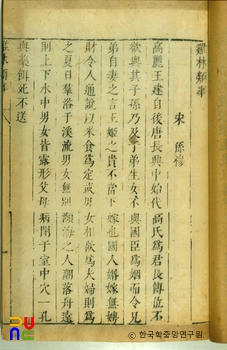 雞林類事
宋　孫穆
高麗王建自後唐長興中始代高氏爲君長傳位不
欲與其子孫乃及于弟生女不與國臣爲姻而令兄
弟自妻之言王姬之貴不當下嫁也國人婚嫁無聘
財令人通說以米食爲定或男女相欲爲夫婦則爲
之夏日羣浴于溪流男女無別瀕海之人潮落舟遠
則上下水中男女皆露形父母病閉于室中穴一孔
與藥餌死不送
한국학중앙연구원